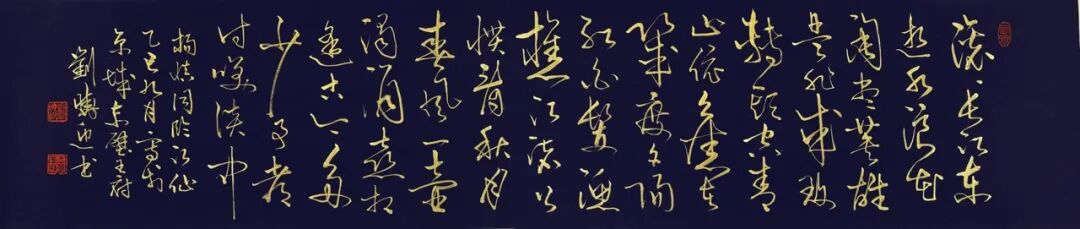 滚滚长江东
逝水浪花
淘尽英雄
是非成败
转头空青
山依旧在
几度夕阳
红白髮漁
樵江渚上
惯看秋月
春风一壶
浊酒喜相
逢古今多
少事都
付笑谈中
杨慎词临江仙
乙巳九月
京城
劉 书